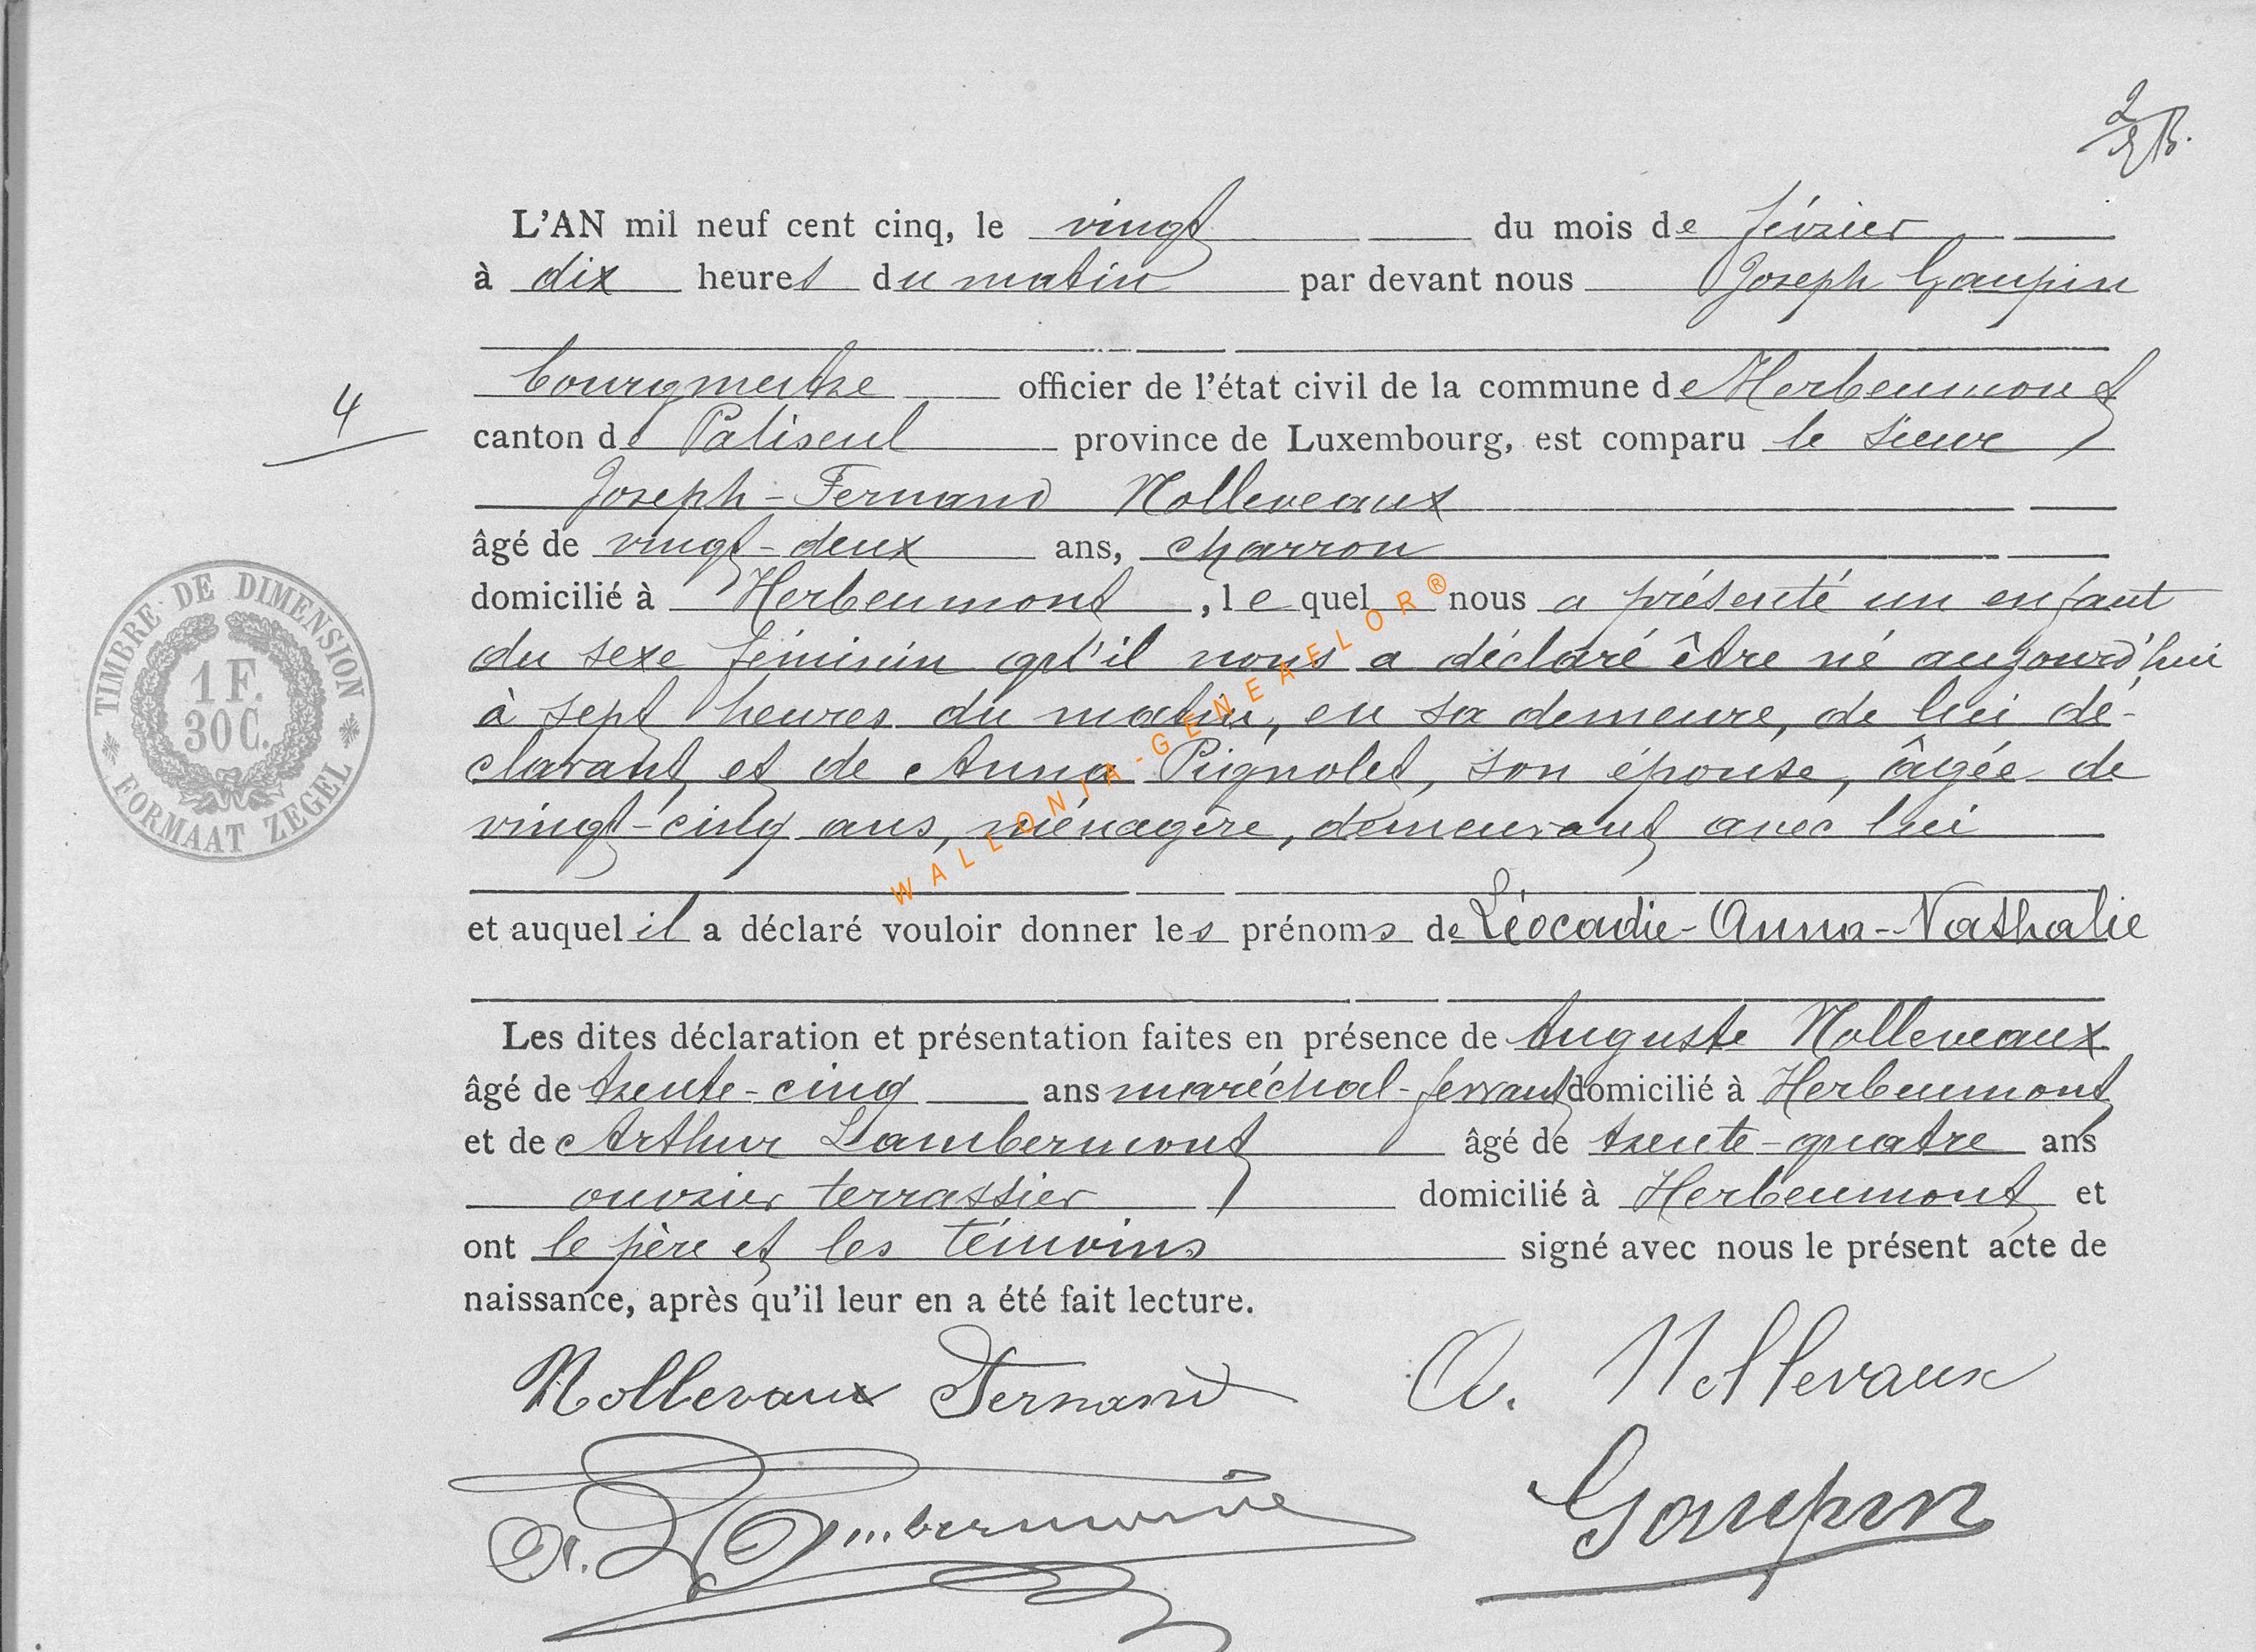 L'AN mil neuf cent cinq, le vingt du mois de février
à dix heures du matin par devant nous Joseph Gaupin
bourgmestre officier de l'état civil de la commune de Herbeumont
4
canton de Paliseul province de Luxembourg, est comparu le sieur
Joseph-Fernand Nolleveaux
âgé de vingt-deux ans, charron
domicilié à Herbeumont, lequel nous a présenté un enfant
du sexe féminin qu'il nous a déclaré être né aujourd'hui
à sept heures du matin, en sa demeure, de lui dé-
clarant et de Anna Pignolet, son épouse, âgée de
vingt-cinq ans, ménagère, demeurant avec lui
TIMBRE DE DIMENSION
1 F.
30 C.
FORMAAT ZEGEL
WALLONIA-GENEAELOR®
et auquel il a déclaré vouloir donner les prénoms de Léocadie-Anna-Nathalie
Les dites déclaration et présentation faites en présence de Auguste Nolleveaux
âgé de trente-cinq ans maréchal-ferrant domicilié à Herbeumont
et de Arthur Lambermont âgé de trente-quatre ans
ouvrier terrassier domicilié à Herbeumont et
ont le père et les témoins signé avec nous le présent acte de
naissance, après qu'il leur en a été fait lecture.
Nollevaux Fernand A. Nollevaux
A. Lambermont Gaupin